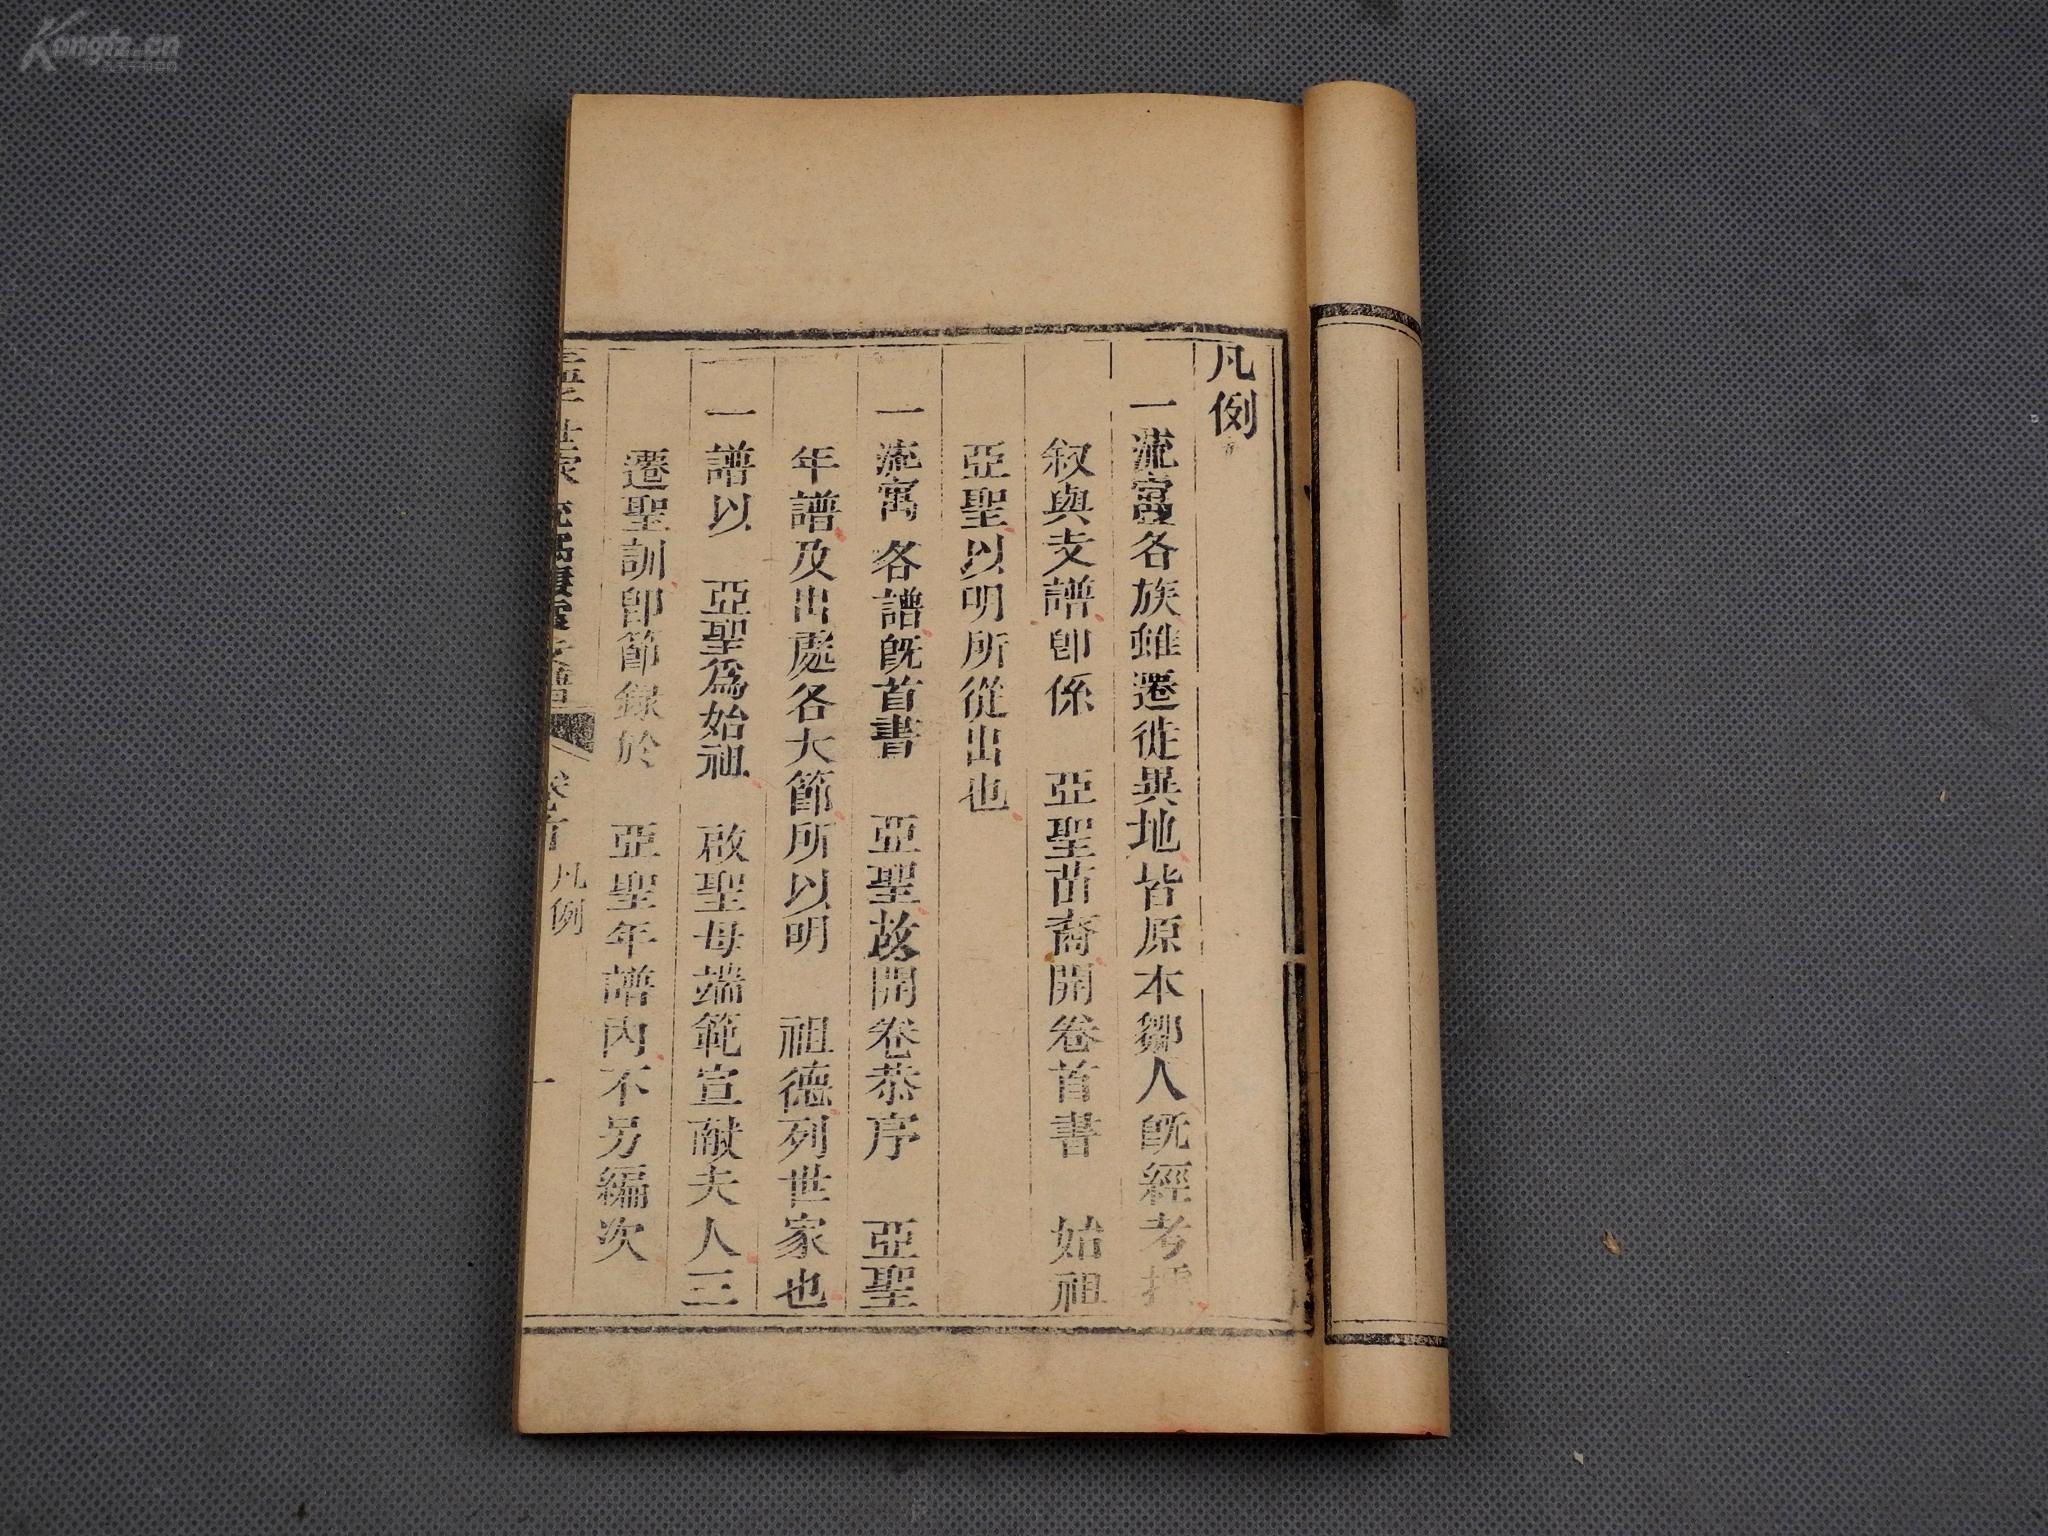 凡例
一流寓各族雖遷徙異地皆原本鄒人旣經考
叙與支譜卽係 亞聖苗裔開卷首書 始祖
亞聖以明所從出也
一流寓 各譜旣首書 亞聖故開卷恭序 亞聖
年譜及出處各大節所以明 祖德列世家也
一譜以 亞聖爲始祖 啟聖母端範宣献夫人三
遷聖訓卽節録於 亞聖年譜內不另編次
卷首 凡例
一
Kongfz.cn